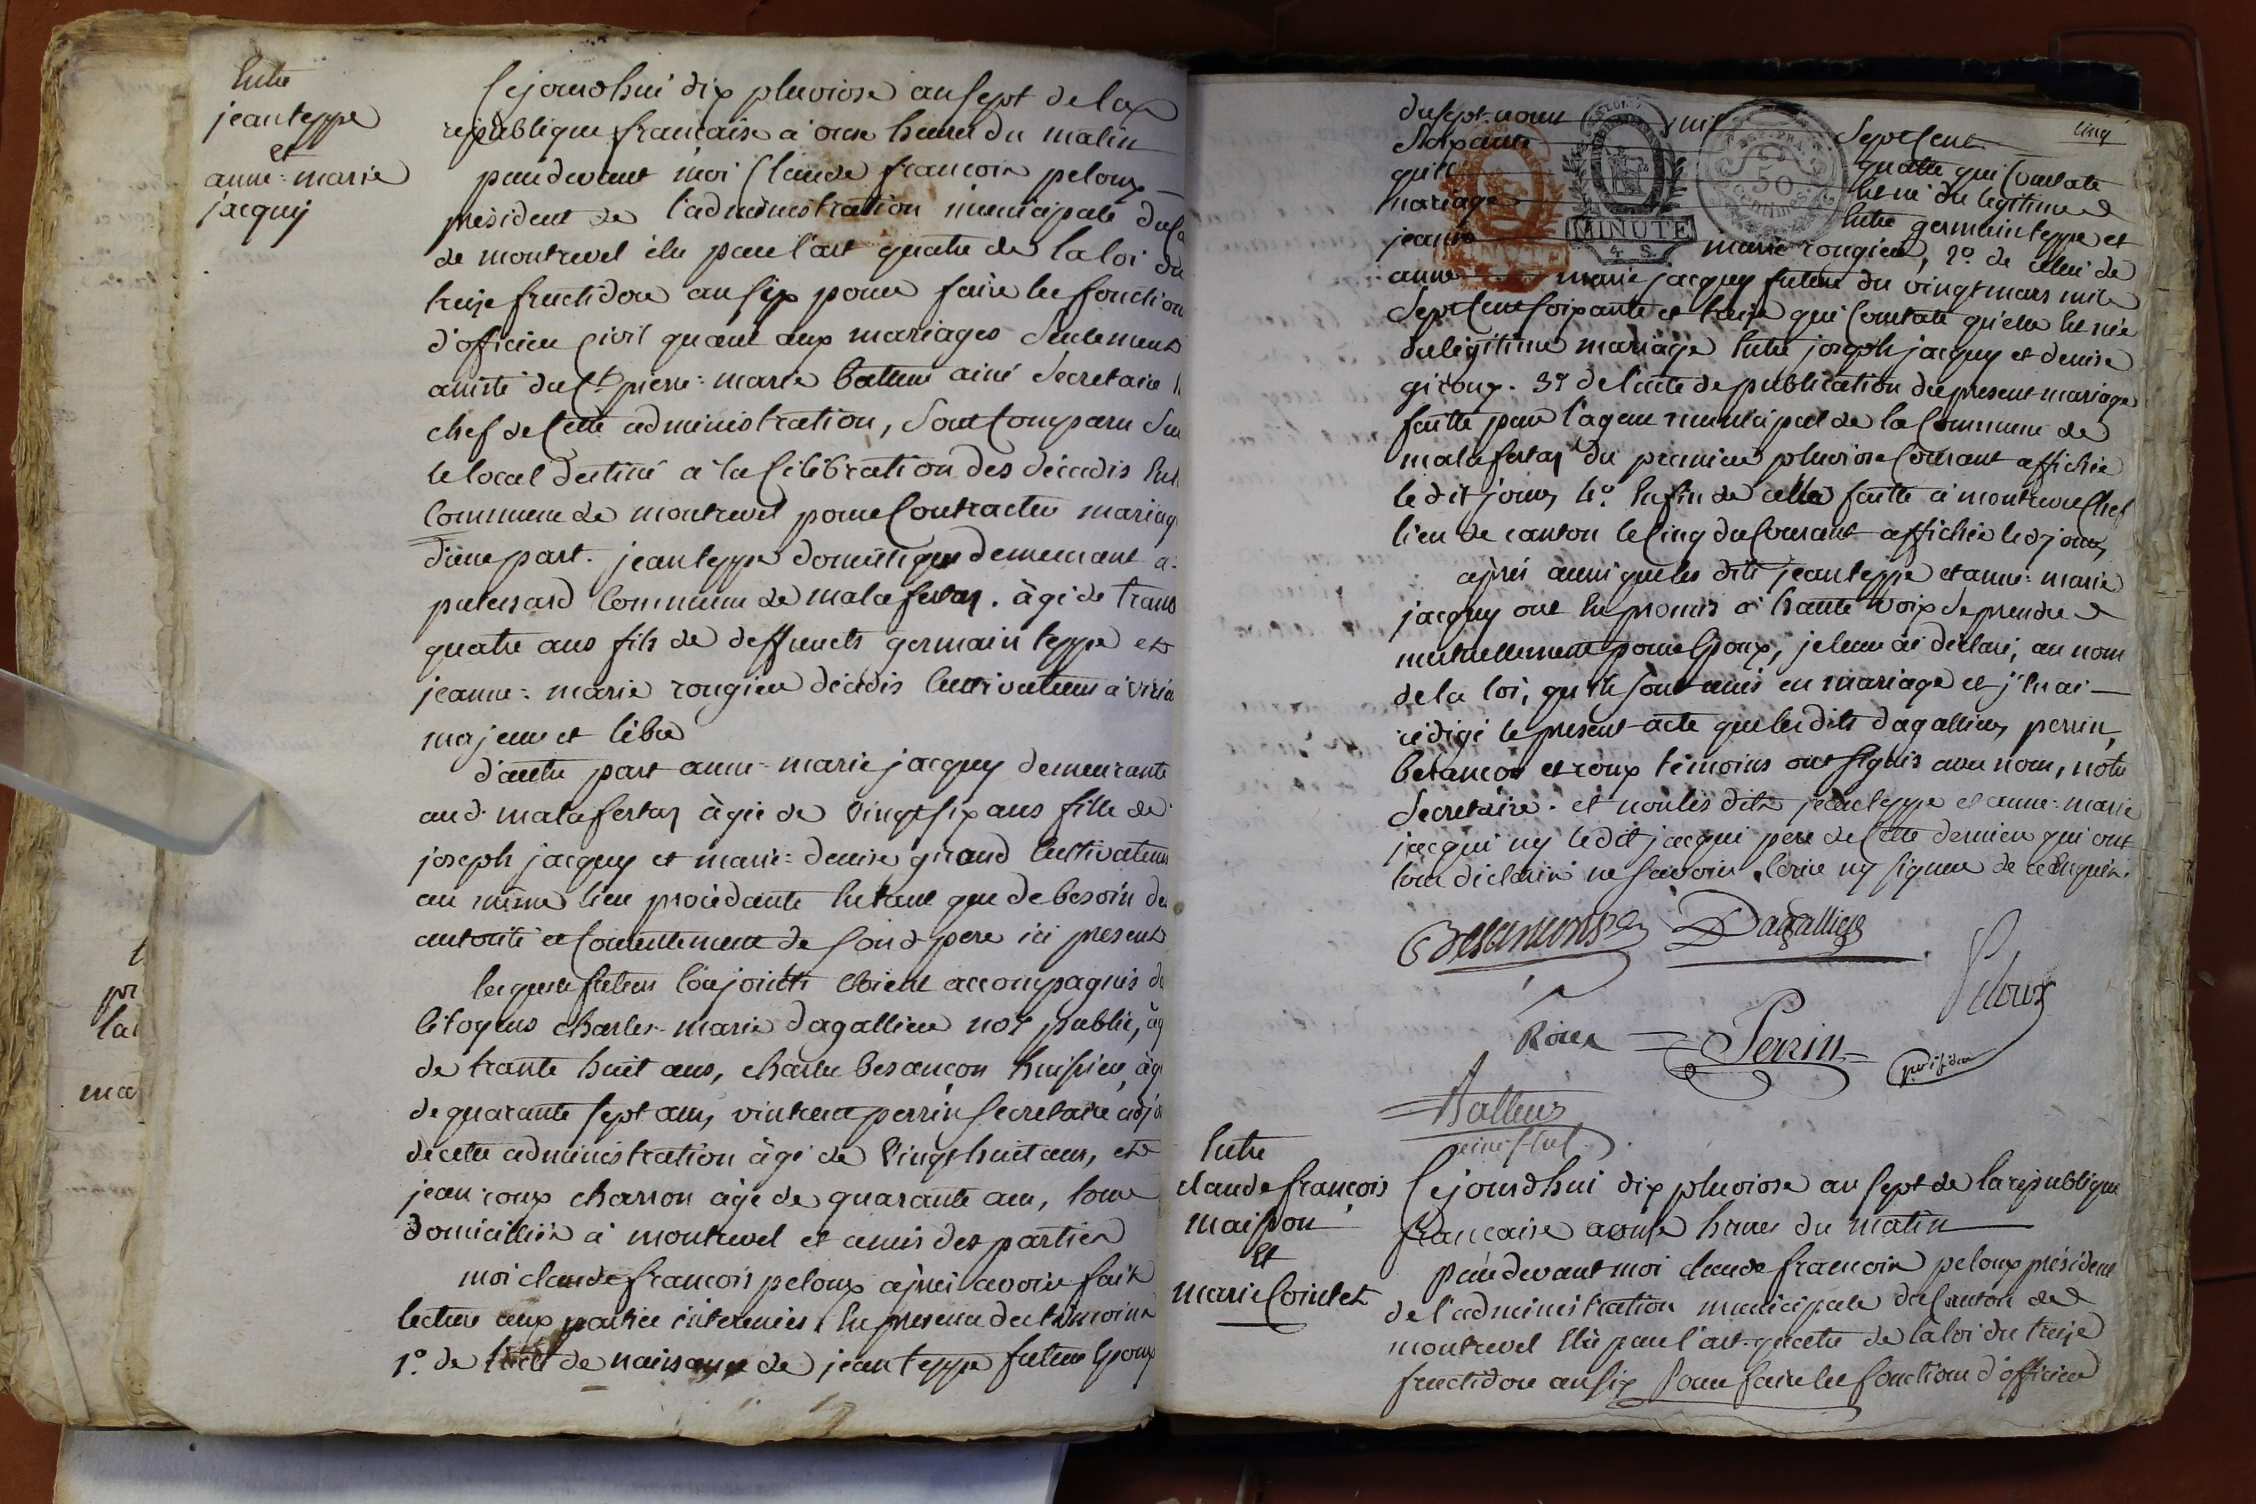 Entre
jean teppe
et
anne-marie
jacquy
Cejourdhui dix pluviose an sept de la
republique francaise a onse heures du matin
pardevant moi Claude francois peloux
président de l'administration municipale du C
de montrevel élu par l'art quatre de la loi du
treize fructidor an six pour faire les fonctions
d'officier civil quant aux mariages seulement
assisté du Ct pierre-marie batteur ainé secretaire en
chef de cette administration, sont comparu sur
le local destiné a la célébration des décadis en
commune de montrevel pour contracter mariage
d'une part. jean teppe domestique demeurant a
commune de malafertay. âgé de trante
quatre ans fils de deffuncts germain teppe et
jeanne-marie rongier décédés cultivateurs a
majeur et libre
d'autre part anne-marie jacquy demeurante
aud. malafertay âgée de vingt six ans fille de
joseph jacquy et marie-denise giroud cultivateurs
au même lieu procédante entant que de besoin de
autorité et consentement de sond. pere ici present
lesquels futurs conjoints etoient accompagnés de
citoyens charles-marie dagallier not. public, âgé
de trante huit ans, charles besançon huissier, âgé
de quarante sept ans, vincent perrin secretaire adjoi
de cette administration âgé de vingt huit ans, et
jean roux charron âgé de quarante ans, tous
domicilliés a montrevel et amis des parties
moi claude francois peloux après avoir fait
lecture aux parties interessées en presence des témoins
1o. de l'acte de naissance de jean teppe futur epoux
cinq
du sept aout mil sept cent
soixante quatre qui constate
qu'il est né du légitime
mariage entre germain teppe et
jeanne marie rongier, 2o. de celui de
anne marie jacquy future du vingt mars mil
sept cent soixante et treize qui constate qu'elle est née
du légitime mariage entre joseph jacquy et denise
giroux. 3o. de l'acte de publication du present mariage
faitte par l'agent municipal de la commune de
malafertay du premier pluviose courant affichée
ledit jour, 4o. enfin de celle faitte a montrevel chef
lieu de canton le cinq du courant affichée led. jour,
après aussi que lesdits jean teppe et anne-marie
jacquy ont eu promis a haute voix de prendre
mutuellement pour Epoux, je leur ai déclaré, au nom
de la loi, qu'ils sont unis en mariage et j'en ai
rédigé le présent acte que lesdits dagallier, perrin,
besançon et roux témoins ont signés avec nous, notre
secretaire. et non lesdits jean teppe et anne-marie
jacqui ny ledit jacqui pere de cette derniere qui ont
tous déclarés ne savoir écrire ny signer de ce enquis.
MINUTE
4 S.
50
Centimes
Besancons Dagallier
Peloux
Roux Perrin
président
Batteur
Entre
claude françois
maisson
et
marie Cointet
Cejourdhui dix pluviose an sept de la république
francaise a onse heures du matin
pardevant moi claude francois peloux président
de l'administration municipale du canton de
montrevel élu par l'art. quatre de la loi du treize
fructidor an six pour faire les fonctions d'officier